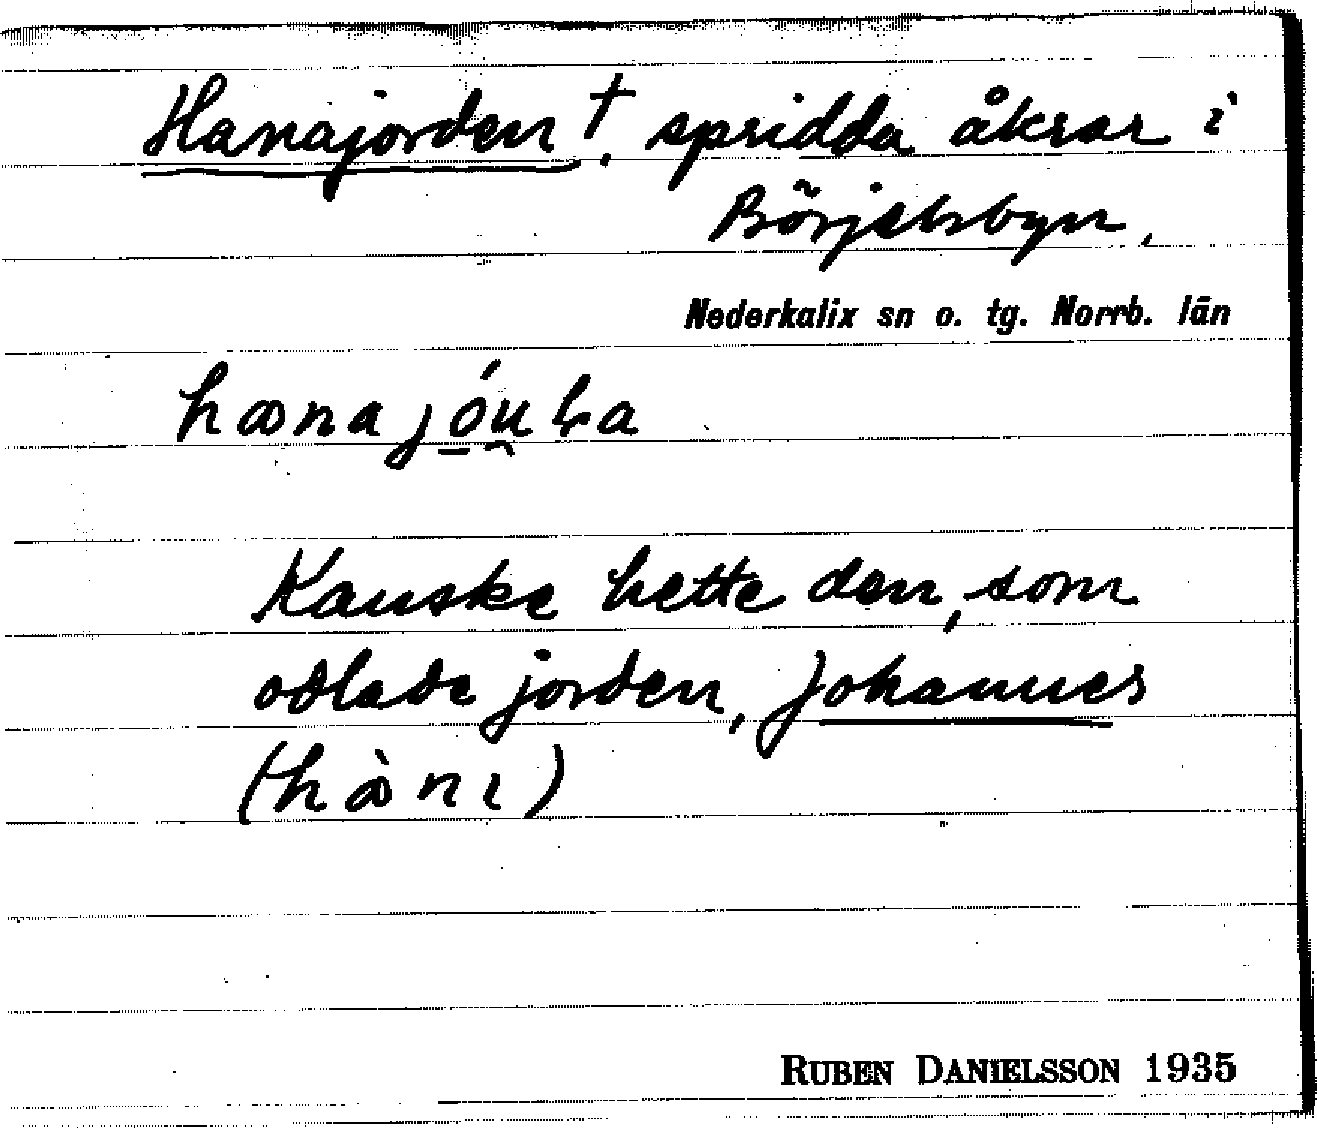 Hanajorden†. spridda åkrar i
Börjelsbyn.
Nederkalix sn o. tg. Norrb. län
Kanske hette den, som
odlade jorden, Johannes
RUBEN DANIELSSON 1935